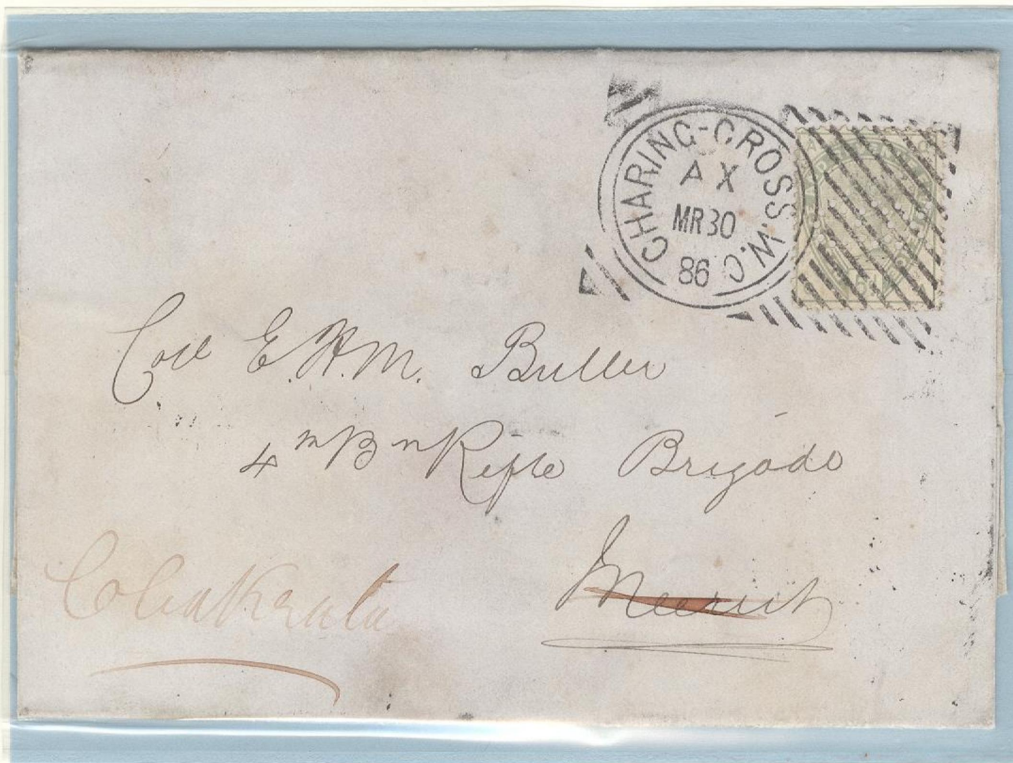 CHARING-CROSS.W.C.
A X
MR 30
86
Coll E.H.M. Buller
4th Bn Rifle Brigade
Meerut
Chakrata